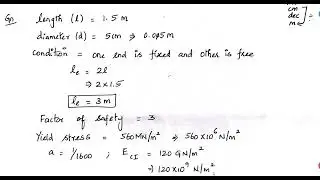 Qn length (l) = 1.5 m
diameter (d) = 5cm ⇒ 0.05m
Condition = one end is fixed and other is free
le = 2l
⇒ 2 x 1.5
le = 3m
Factor of safety = 3
Yield stress = 560MN/m² ⇒ 560x10⁶ N/m²
a = 1/1600 ; E_CI = 120 GN/m²
⇒ 120x10⁹ N/m²
cm
dec
m